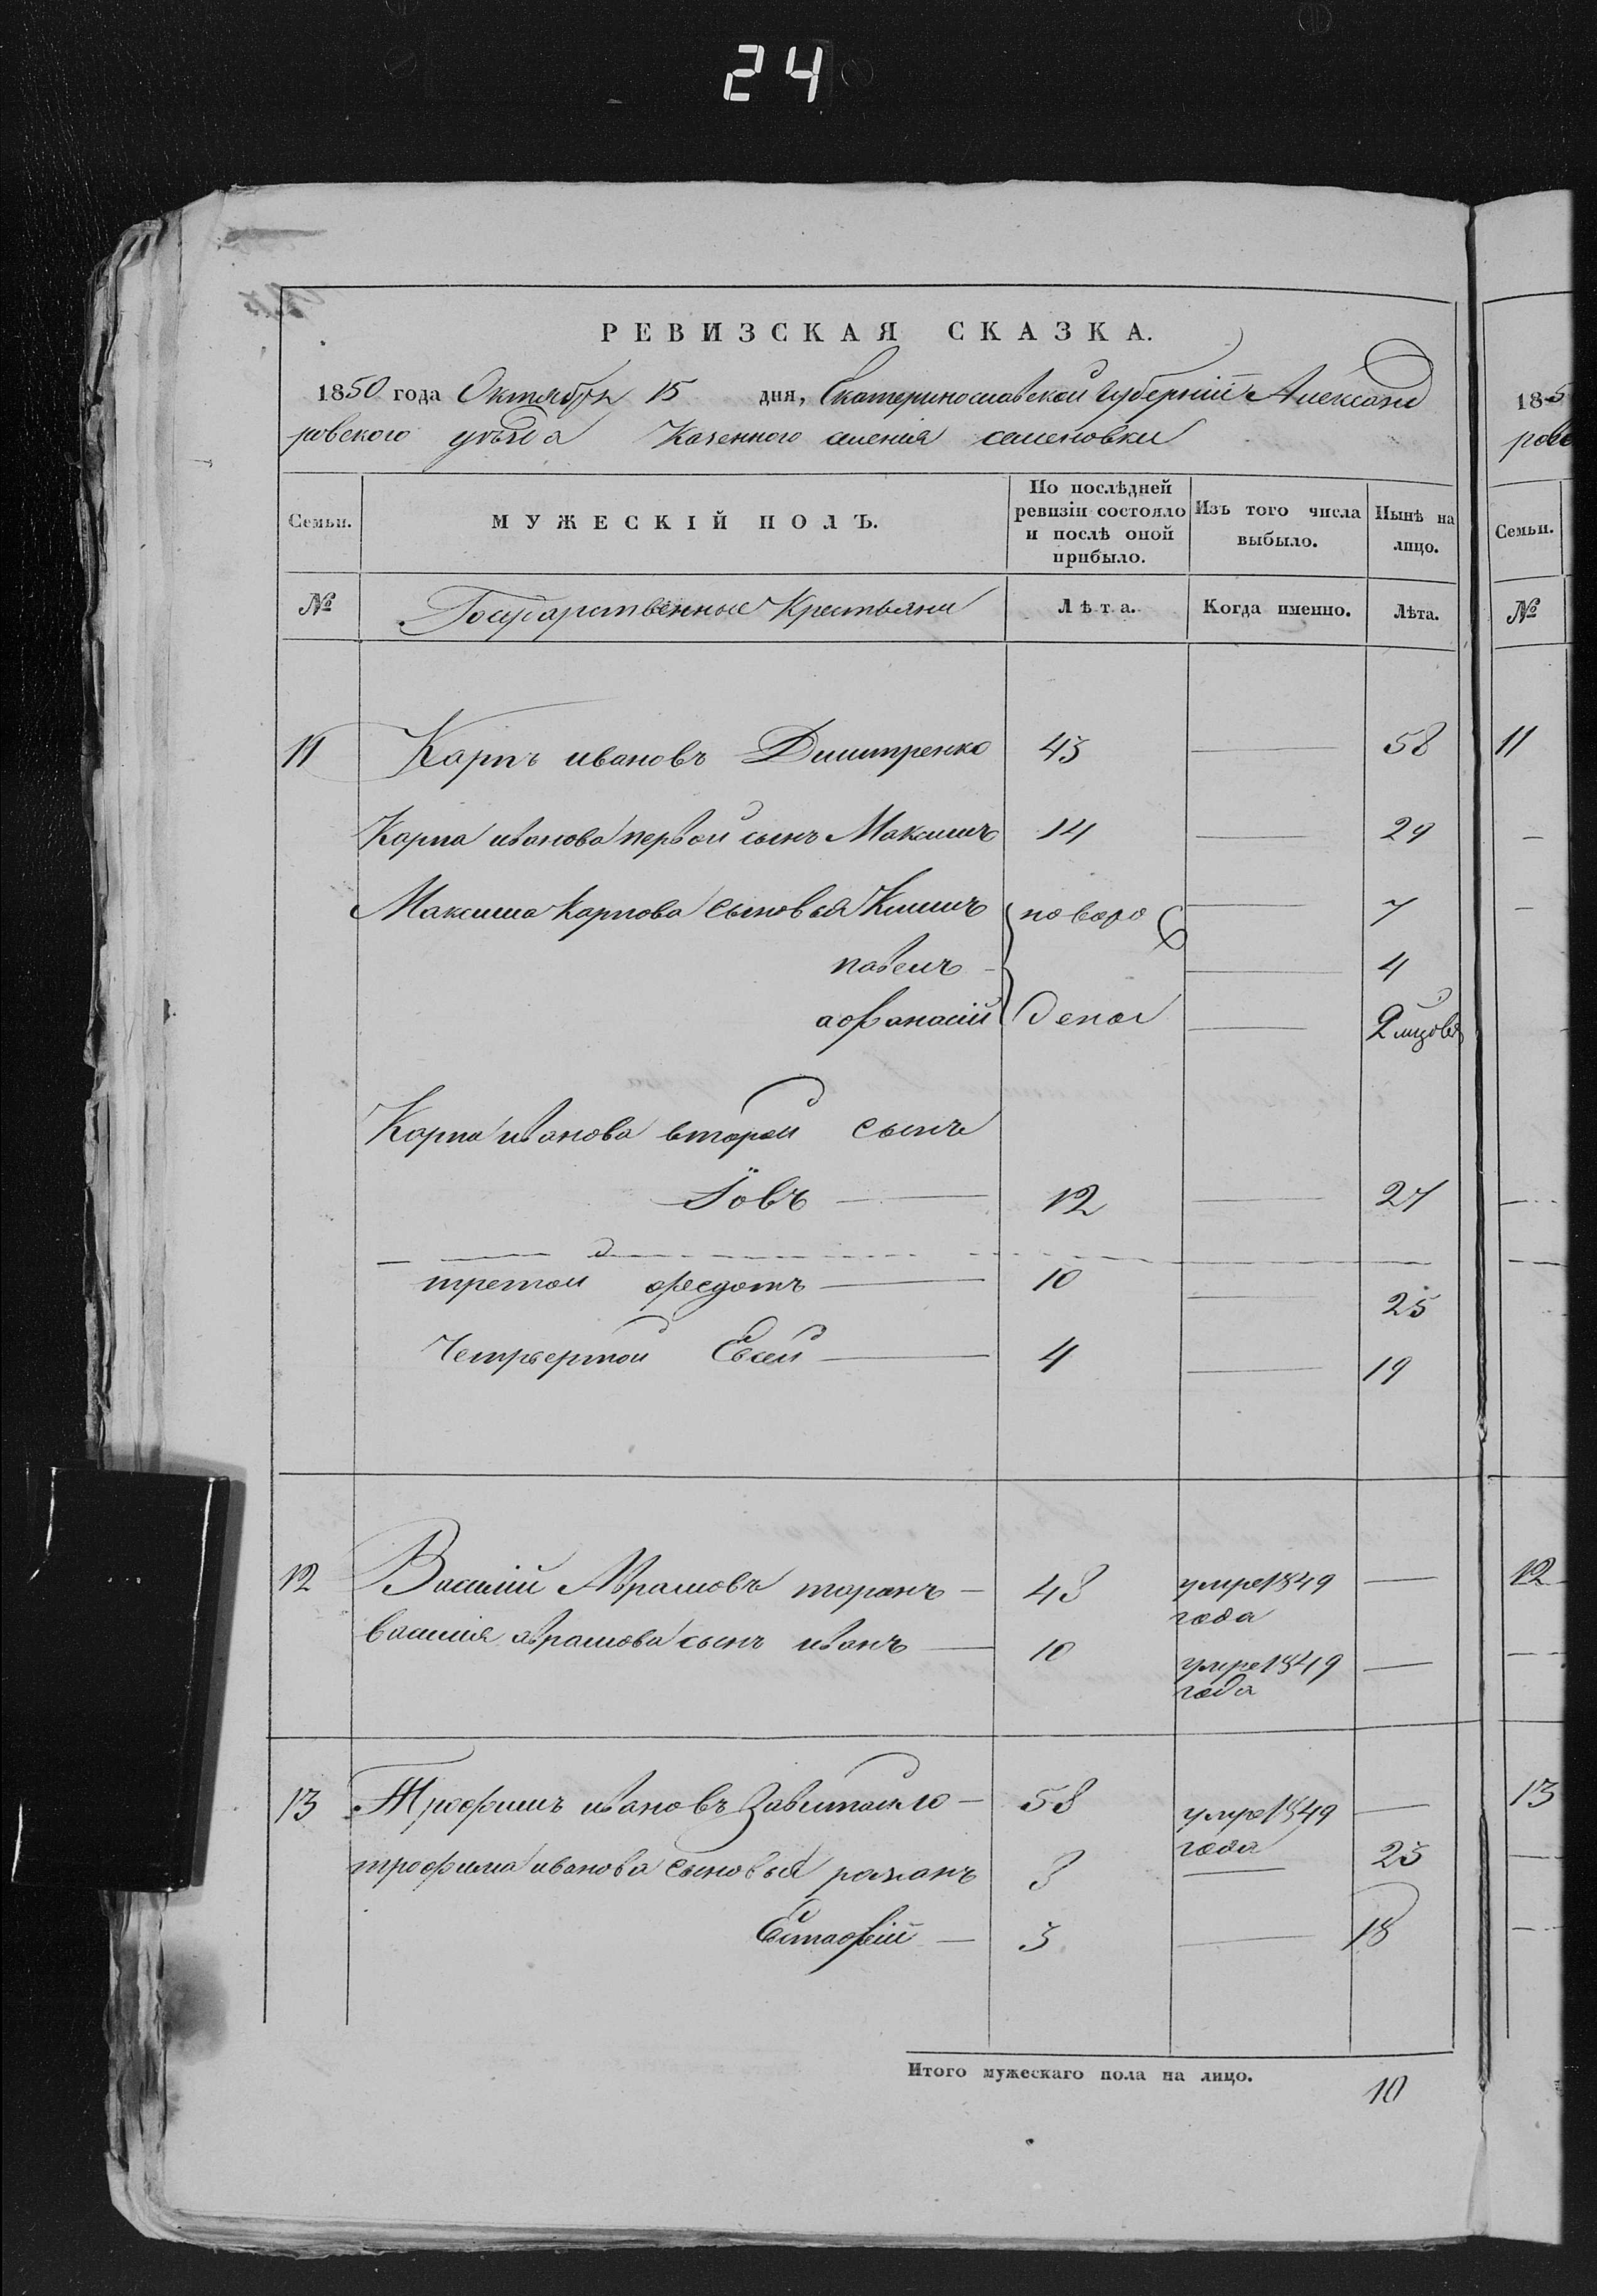 24
РЕВИЗСКАЯ СКАЗКА.
1850 года Октября 15 дня, Екатеринославской губерніи Александ
ровского уѣзда Казенного селения семеновки
Семьи. МУЖЕСКІЙ ПОЛЪ. По послѣдней ревизіи состояло и послѣ оной прибыло. Изъ того числа выбыло. Нынѣ на лицо.
№ Государственные Крестьяни Лѣта. Когда именно. Лѣта.
11 Карпъ ивановъ Димитренко 43 — 58
Карпа иванова первой сынъ Максимъ 14 — 29
Максима Карпова сыновья Климъ новоро — 7
павелъ — 4
афанасий дены — 2 мцовъ
Карпа иванова второй сынъ
Іовъ — 12 — 27
третой федотъ — 10 — 25
Четвертой Евсей — 4 — 19
12 Василий Аврамовъ таранъ — 43 умре 1849 —
года
василия аврамова сынъ иванъ — 10 умре 1849 —
года
13 Трофимъ ивановъ 58 умре 1849 —
года
трофима иванова сыновья романъ 8 — 23
Естафий — 3 — 18
Итого мужескаго пола на лицо. 10
185
рово
Семьи.
№
11
12
13